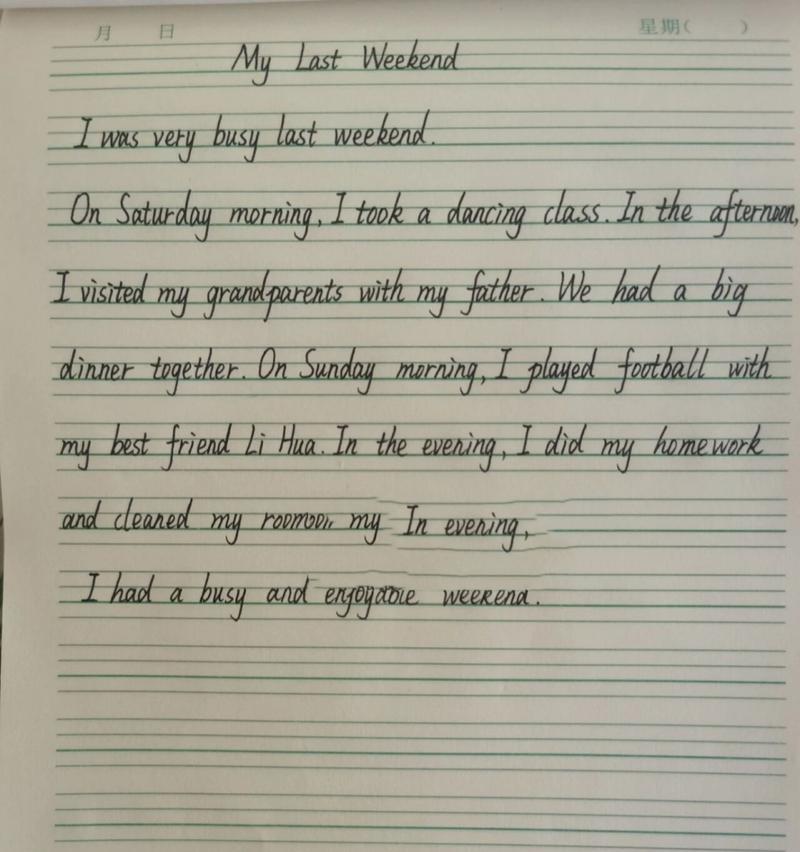 月 日 星期( )
My Last Weekend
I was very busy last weekend.
On Saturday morning, I took a dancing class. In the afternoon,
I visited my grandparents with my father. We had a big
dinner together. On Sunday morning, I played football with
my best friend Li Hua. In the evening, I did my homework
and cleaned my my In evening,
I had a busy and weekend.